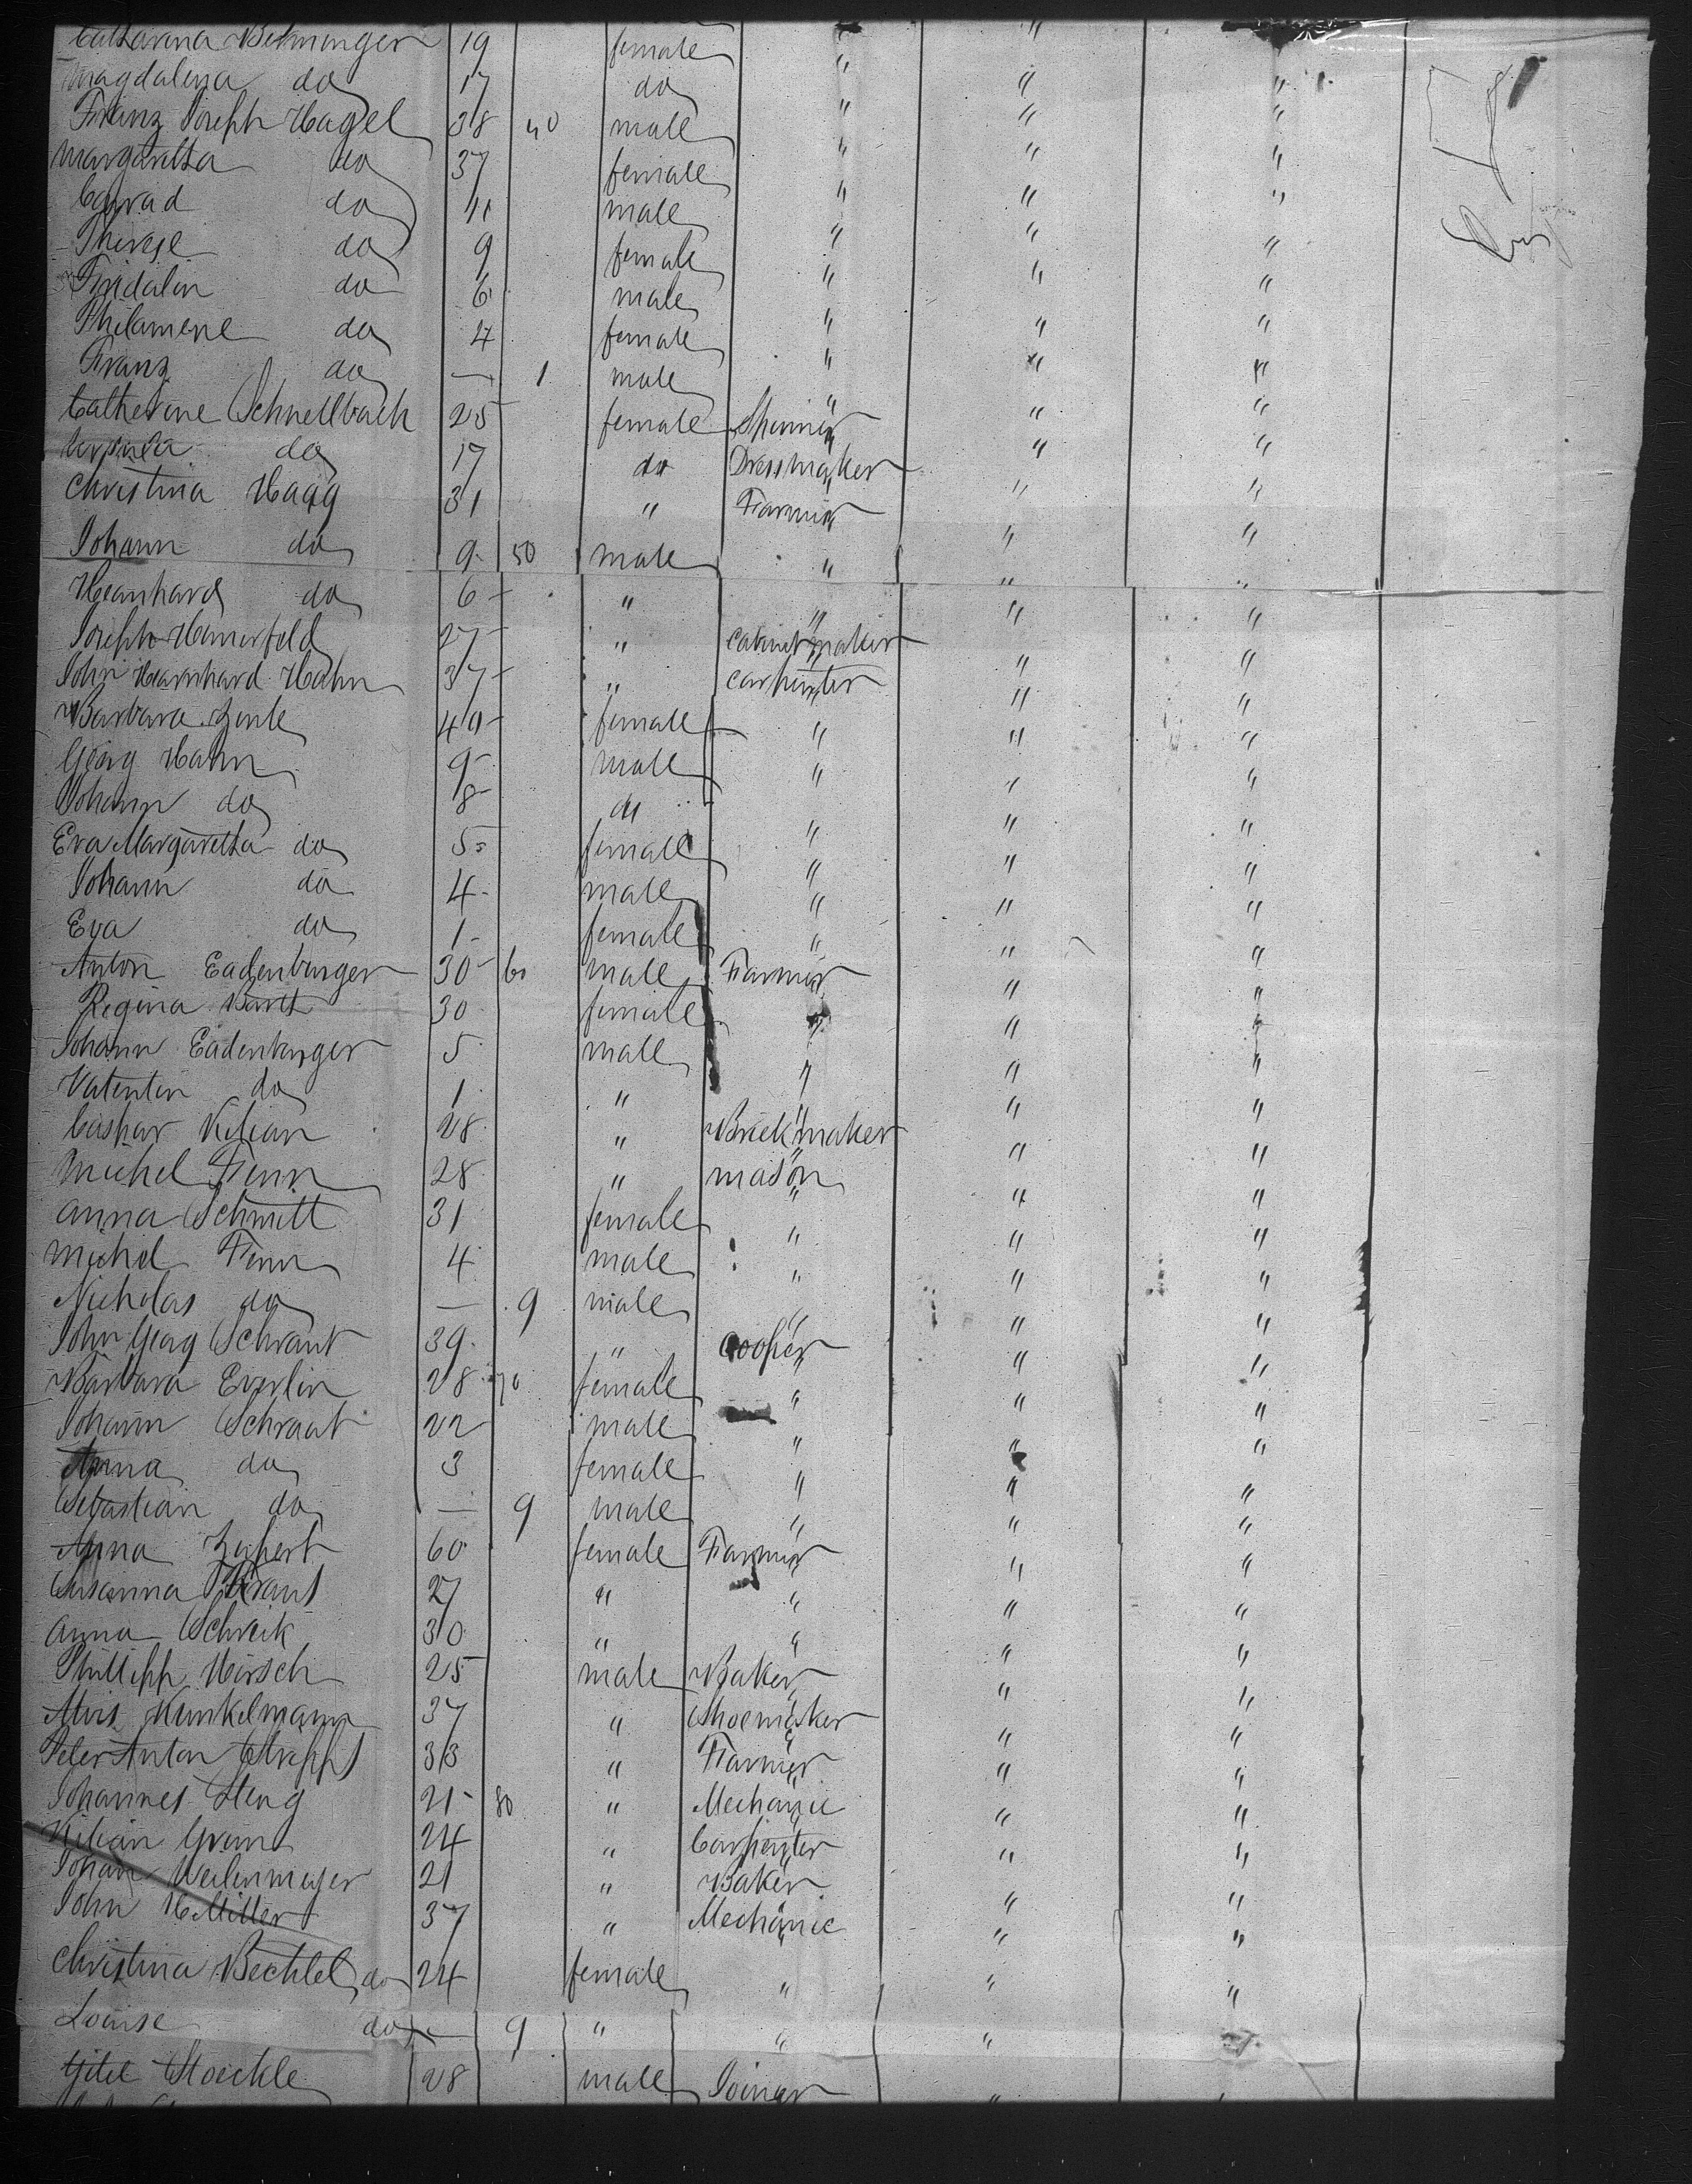 Catharina Behringer 19 female " " "
Magdalena do 17 do " " "
Franz Joseph Hagel 38 40 male " " "
Margaretha do 37 female " " "
Conrad do 11 male " " "
Therese do 9 female " " "
Fridolin do 6 male " " "
Philamene do 4 female " " "
Franz do — 1 male " " "
Catherine Schnellbach 25 female " "
Ursula do 17 do Dressmaker " "
Christina Haag 31 " Farmer " "
Johann do 9 50 male " " "
Heanhard do 6 " " " "
Joseph 27 " Cabinetmaker " "
John Hearnhard Hahn 37 " carpenter " "
Barbara 40 female " " "
Georg Hahn 9 male " " "
Johann do 8 do " "
Eva Margaretha do 5 female " " "
Johann do 4 male " " "
Eva do 1 female " " "
Anton Eadenburger 30 60 male Farmer " "
Regina 30 female " " "
Johann Eadenburger 5 male " " "
Valentin do 1 " " " "
Caspar Kilian 28 " Brickmaker " "
Michel Fenn 28 " mason " "
Anna Schmitt 31 female " " "
Michel Fenn 4 male " " "
Nicholas do — 9 male " " "
John Georg Schraut 39 " Cooper " "
Barbara Everlin 28 70 female " " "
Johann Schraut 22 male " " "
Anna do 3 female " " "
Sebastian do — 9 male " " "
Anna 60 female Farmer " "
Susanna 27 " " " "
Anna Schreik 30 " " " "
Phillipp Hirsch 25 male Baker " "
Alois Kunkelmann 37 " Shoemaker " "
Peter Anton 33 " Farmer " "
Johannes Steng 21 80 " Mechanic " "
Kilian Grün 24 " Carpenter " "
Johan Weilenmeyer 21 " Baker " "
John H Miller 37 " Mechanic " "
Christina Bechtel do 24 female " " "
Louise do — 9 " " " "
Stoeckle 28 male Joiner "